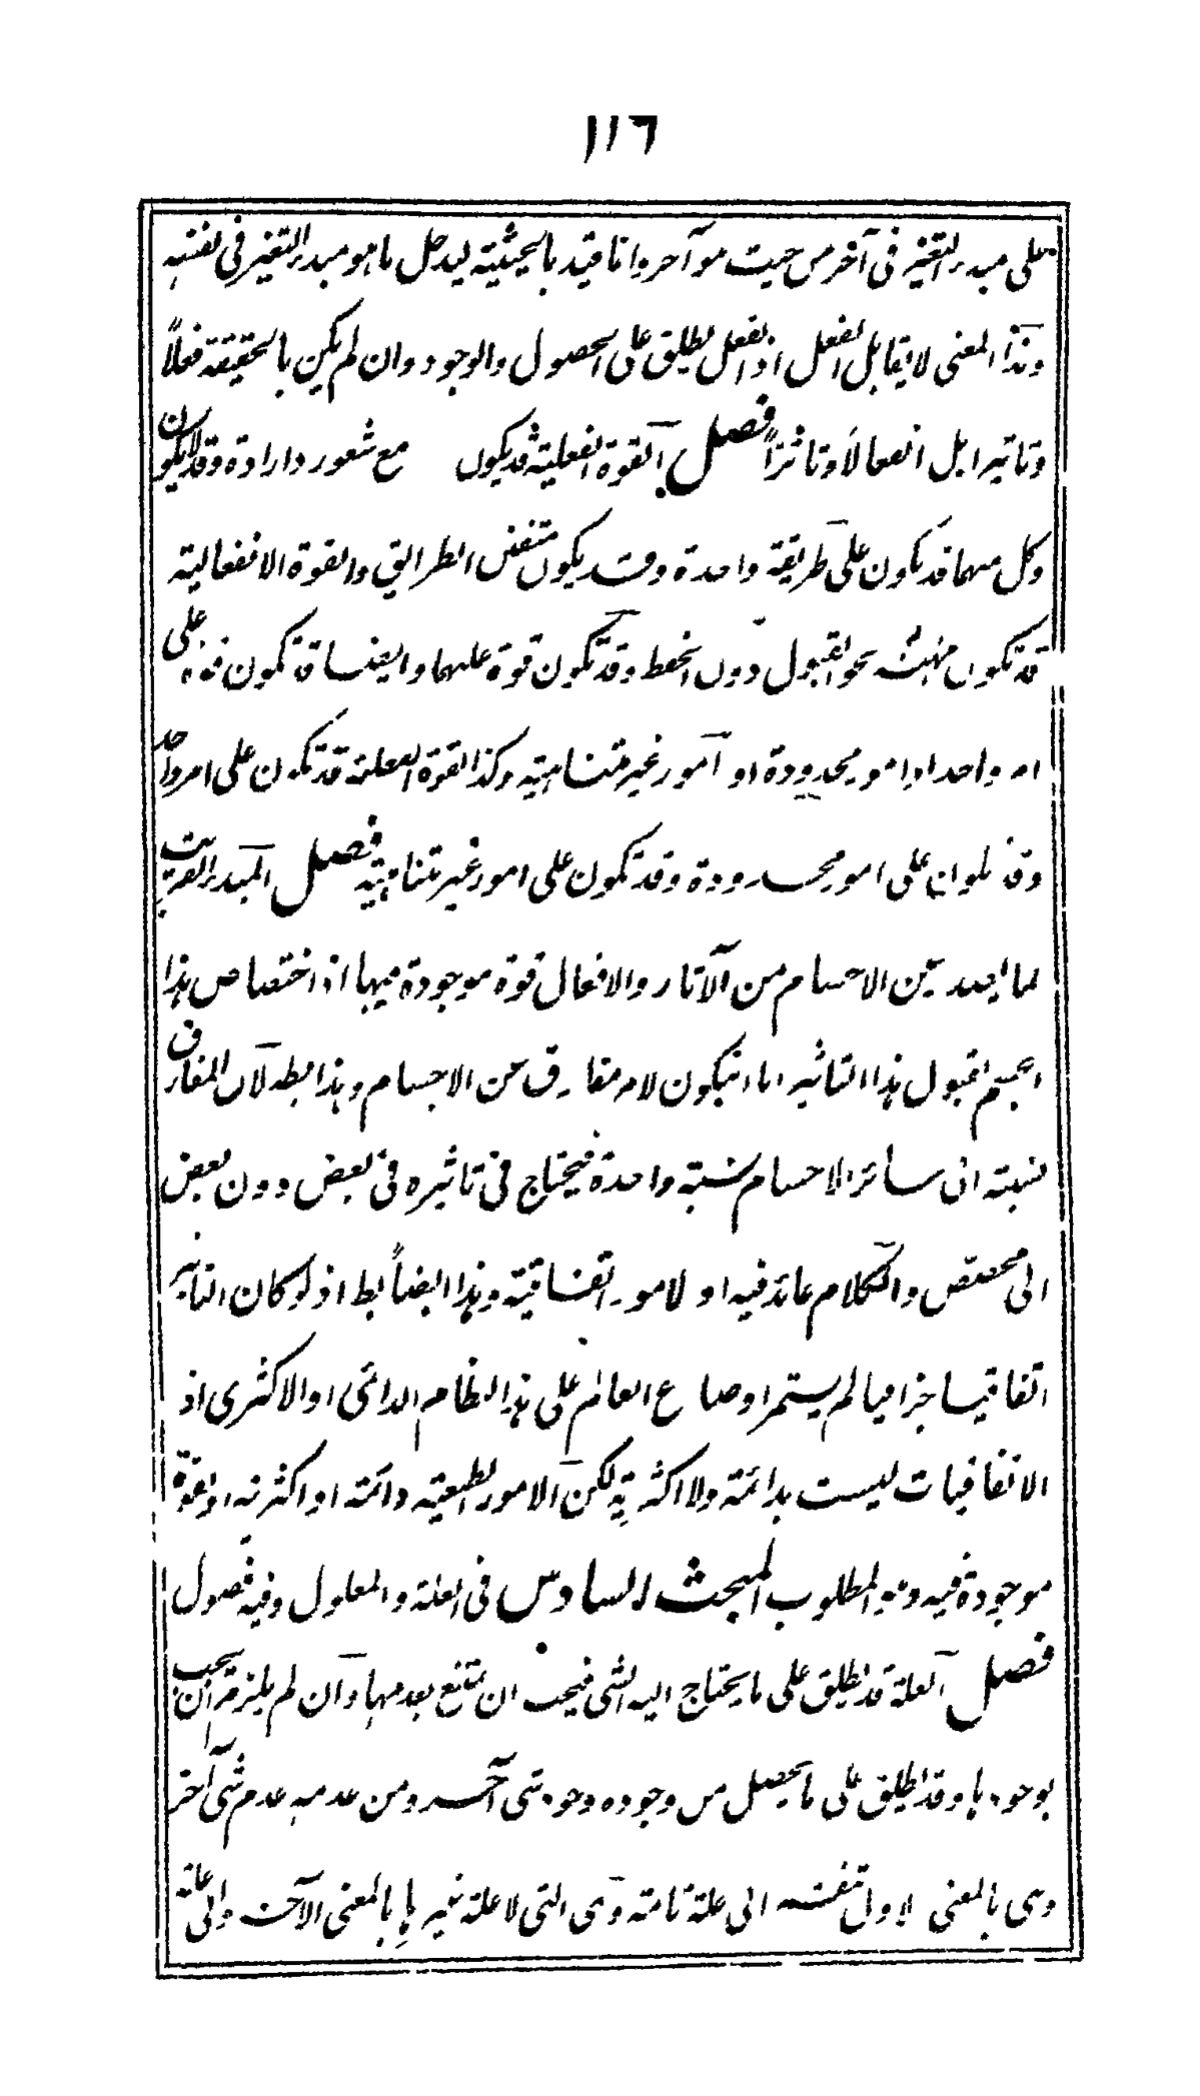 ١١٦
على مبدء التغير فى آخر من حيث هو آخر وانما قيد بالحيثية ليدخل ما هو مبدء التغير فى نفسه
وهذا المعنى لا يقابل الفعل اذ الفعل يطلق على الحصول والوجود وان لم يكن بالحقيقة فعلاً
وتاثيرا بل انفعالاً وتاثراً فصل القوة الفعلية قد يكون مع شعور وارادة وقد لا يكون
وكل منهما قد يكون على طريقة واحدة وقد يكون متفنن الطرايق والقوة الانفعالية
قد تكون نحو القبول دون الحفظ وقد تكون قوة عليهما وايضا قد تكون قوة على
امر واحد او امور محدودة او امور غير متناهية وكذا القوة الفعلية قد تكون على امر واحد
وقد تكون على امور محدودة وقد تكون على امور غير متناهية فصل المبدء القريب
لما يصدر عن الاجسام من الآثار والافعال قوة موجودة فيها اذ اختصاص هذا
الجسم لقبول هذا التاثير اما ان يكون لامر مفارق عن الاجسام وهذا بط لان المفارق
نسبته الى سائر الاجسام نسبة واحدة فيحتاج فى تاثيره فى بعض دون بعض
الى مخصص والكلام عائد فيه او لامور اتفاقية وهذا ايضاً بط اذ لو كان التاثير
اتفاقيا جزافيا لم يستمر اوضاع العالم على هذا النظام الدائمى او الاكثرى اذ
الاتفاقيات ليست بدائمة ولا اكثرية لكن الامور الطبعية دائمة او اكثرية او لقوة
موجودة فيه وهو المطلوب المبحث السادس فى العلة والمعلول وفيه فصول
فصل العلة قد يطلق على ما يحتاج اليه الشى فيجب ان يمتنع بعدمها وان لم يلزم ان يجب
بوجودها وقد يطلق على ما يحصل من وجوده وجود شى آخر ومن عدمه عدم شى آخر
وهى بالمعنى الاول تنقسم الى علة تامة وهى التى لا علة غيرها بالمعنى الآخر والى علة